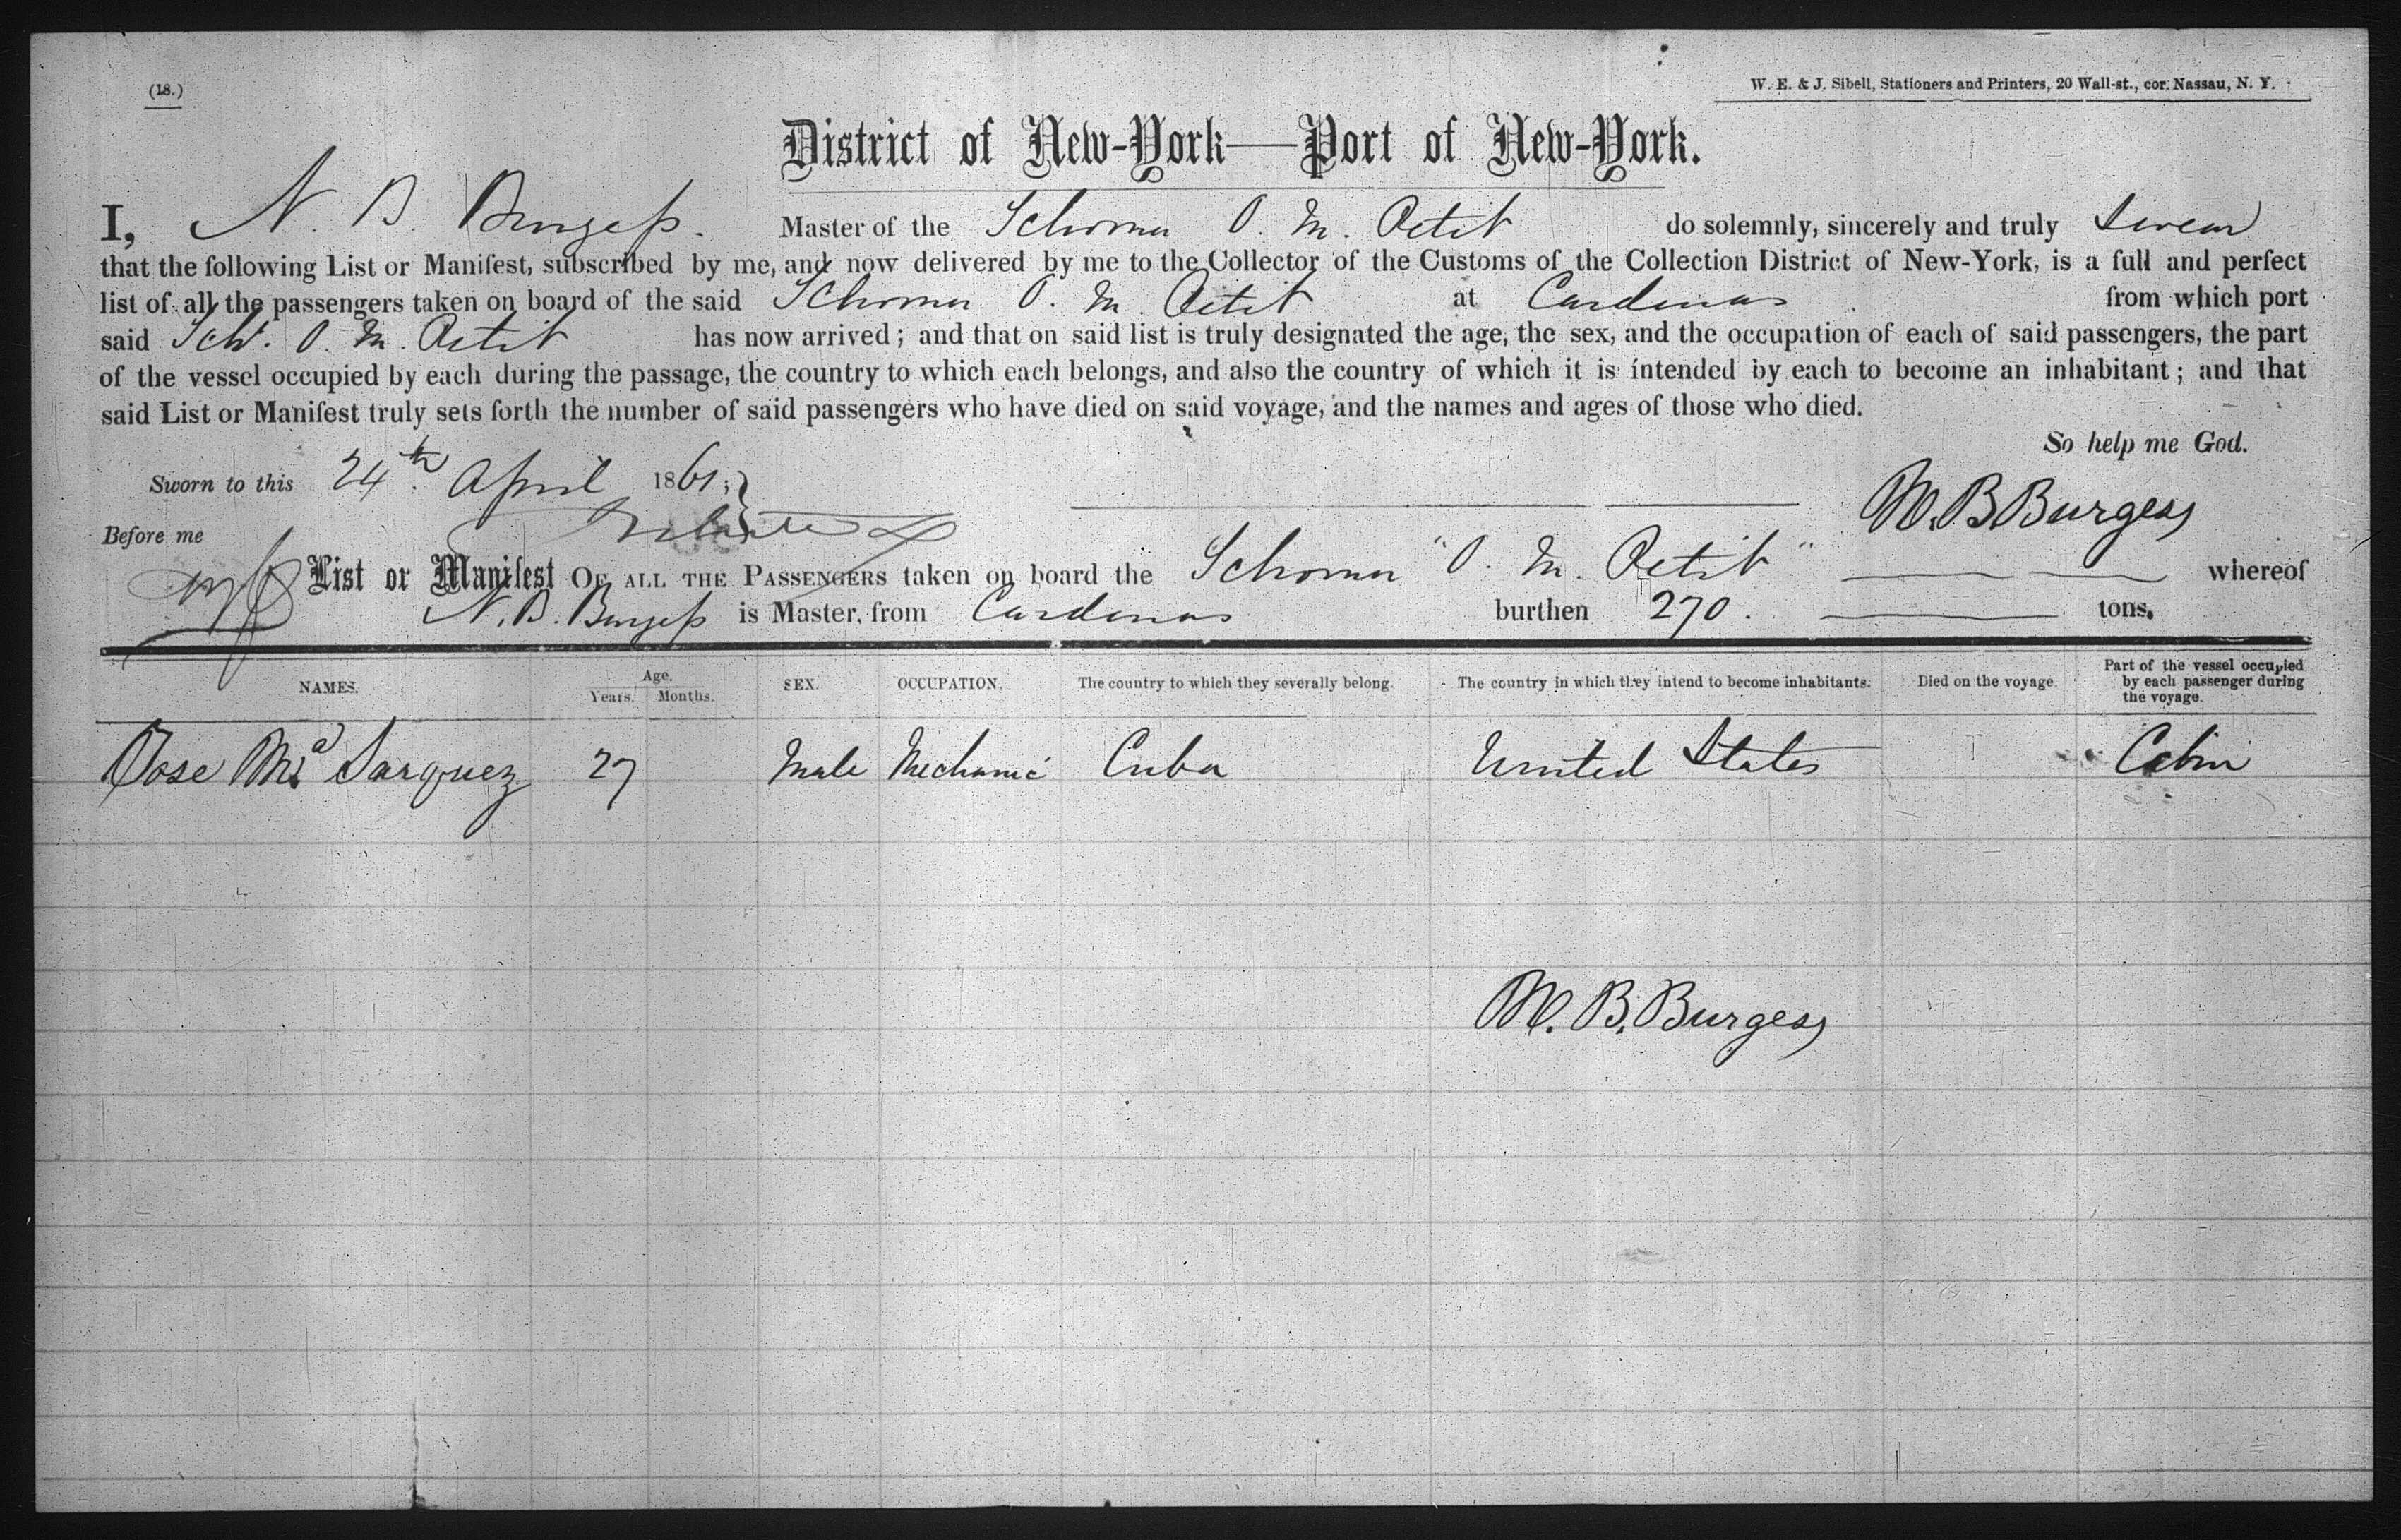 (18.)
W. E. & J. Sibell, Stationers and Printers, 20 Wall-st., cor. Nassau, N. Y.
District of New-York—Port of New-York.
I, N. B. Burgess. Master of the Schooner O. M. Petit do solemnly, sincerely and truly Swear
that the following List or Manifest, subscribed by me, and now delivered by me to the Collector of the Customs of the Collection District of New-York, is a full and perfect
list of all the passengers taken on board of the said Schooner O. M. Petit at Cardenas from which port
said Schr. O. M. Petit has now arrived; and that on said list is truly designated the age, the sex, and the occupation of each of said passengers, the part
of the vessel occupied by each during the passage, the country to which each belongs, and also the country of which it is intended by each to become an inhabitant; and that
said List or Manifest truly sets forth the number of said passengers who have died on said voyage, and the names and ages of those who died.
So help me God.
Sworn to this 24th April 1861;
Before me
M. B. Burgess
List or Manifest OF ALL THE PASSENGERS taken on board the Schooner "O. M. Petit" whereof
N. B. Burgess is Master, from Cardenas burthen 270. tons.
NAMES. Age. Years. Months. SEX. OCCUPATION. The country to which they severally belong. The country in which they intend to become inhabitants. Died on the voyage. Part of the vessel occupied by each passenger during the voyage.
Jose Ma Sarquez 27 Male Mechanic Cuba United States Cabin
M. B. Burgess